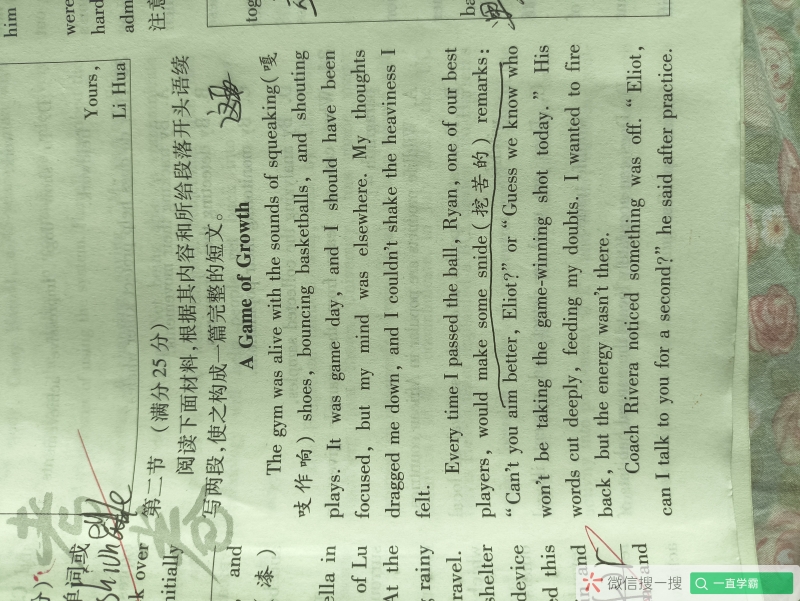 him
were
hard
adm
注意
tog
ba
Yours,
Li Hua
第二节 (满分 25 分)
阅读下面材料,根据其内容和所给段落开头语续
写两段,使之构成一篇完整的短文。
A Game of Growth
The gym was alive with the sounds of squeaking(嘎
吱作响) shoes, bouncing basketballs, and shouting
plays. It was game day, and I should have been
focused, but my mind was elsewhere. My thoughts
dragged me down, and I couldn't shake the heaviness I
felt.
Every time I passed the ball, Ryan, one of our best
players, would make some snide(挖苦的) remarks:
“Can't you aim better, Eliot?” or “Guess we know who
won't be taking the game-winning shot today.” His
words cut deeply, feeding my doubts. I wanted to fire
back, but the energy wasn't there.
Coach Rivera noticed something was off. “Eliot,
can I talk to you for a second?” he said after practice.
分)
单词或
k over
nitially
and
漆)
ella in
of Lu
At the
g rainy
ravel.
shelter
device
ed this
and
and
微信搜一搜
一直学霸